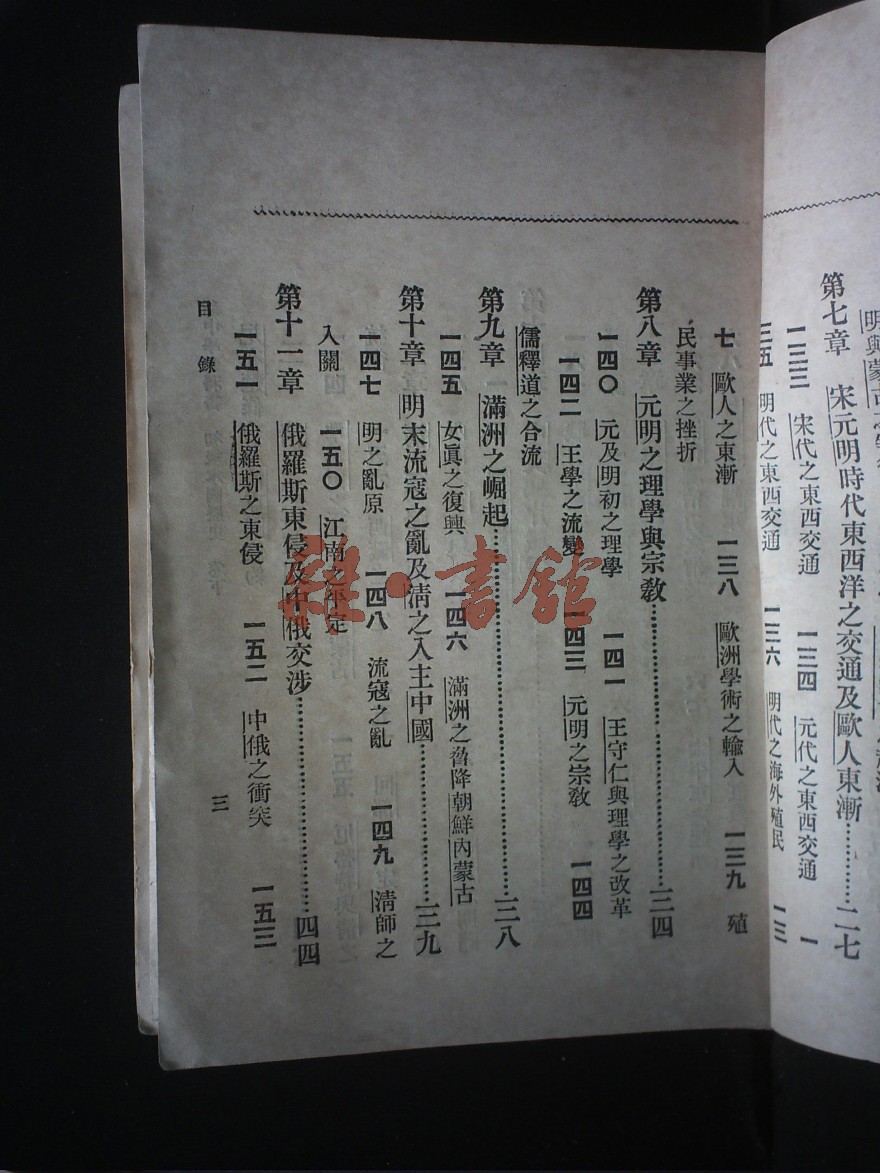 第七章 宋元明時代東西洋之交通及歐人東漸……二七
一三三 宋代之東西交通 一三四 元代之東西交通 一
三五 明代之東西交通 一三六 明代之海外殖民 一三
七 歐人之東漸 一三八 歐洲學術之輸入 一三九 殖
民事業之挫折
第八章 元明之理學與宗教……三四
一四〇 元及明初之理學 一四一 王守仁與理學之改革
一四二 王學之流變 一四三 元明之宗教 一四四
儒釋道之合流
第九章 滿洲之崛起……三八
一四五 女眞之復興 一四六 滿洲之脅降朝鮮內蒙古
第十章 明末流寇之亂及淸之入主中國……三九
一四七 明之亂原 一四八 流寇之亂 一四九 淸師之
入關 一五〇 江南之平定
第十一章 俄羅斯東侵及中俄交涉……四四
一五一 俄羅斯之東侵 一五二 中俄之衝突 一五三
目錄 三
雜·書館